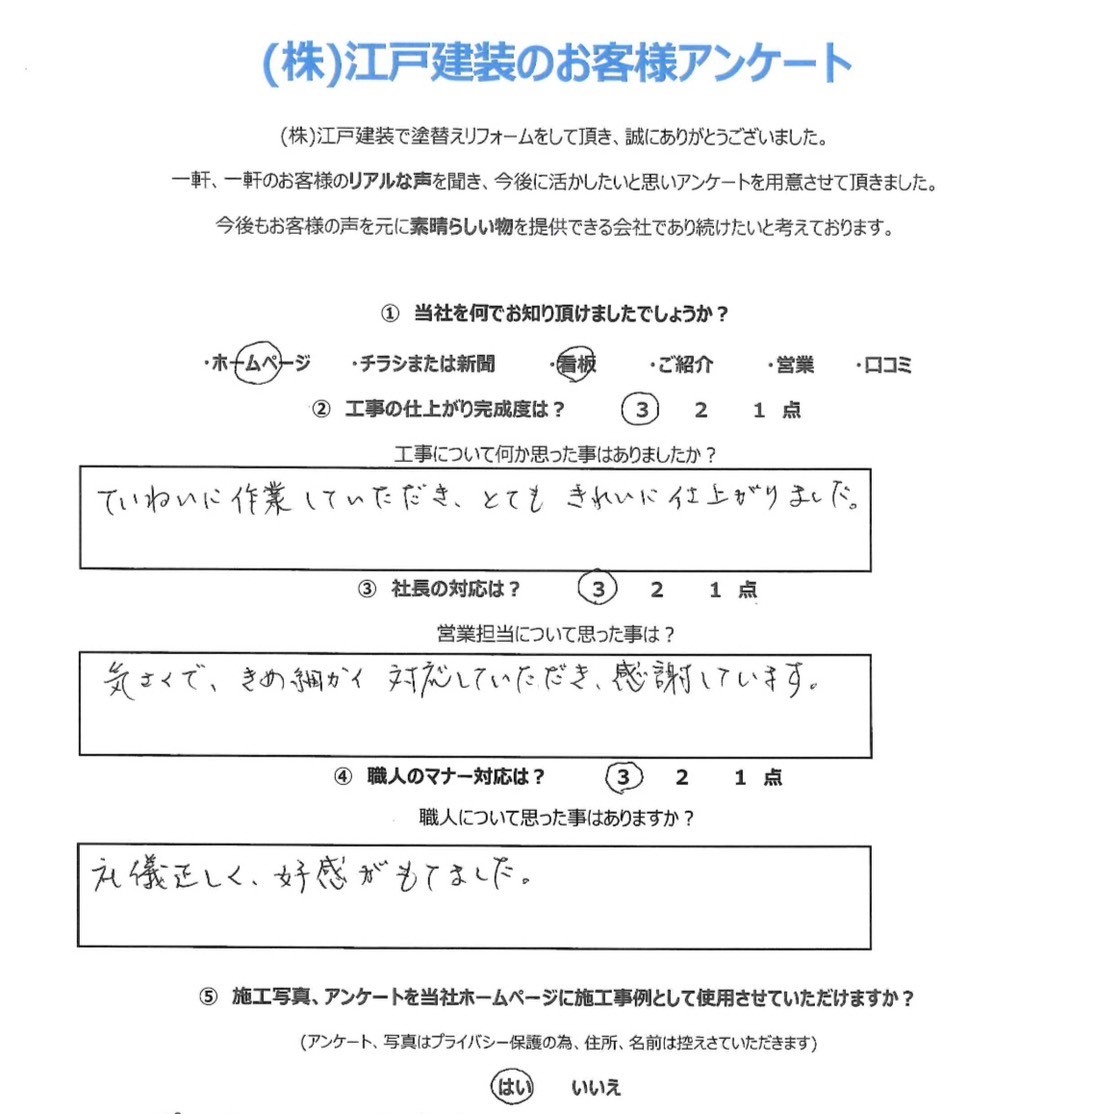 (株)江戸建装のお客様アンケート
(株)江戸建装で塗替えリフォームをして頂き、誠にありがとうございました。
一軒、一軒のお客様のリアルな声を聞き、今後に活かしたいと思いアンケートを用意させて頂きました。
今後もお客様の声を元に素晴らしい物を提供できる会社であり続けたいと考えております。
① 当社を何でお知り頂けましたでしょうか？
・ホームページ ・チラシまたは新聞 ・看板 ・ご紹介 ・営業 ・口コミ
② 工事の仕上がり完成度は？ 3 2 1 点
工事について何か思った事はありましたか？
ていねいに作業していただき、とても きれいに仕上がりました。
③ 社長の対応は？ 3 2 1 点
営業担当について思った事は？
気さくで、きめ細かく 対応していただき、感謝しています。
④ 職人のマナー対応は？ 3 2 1 点
職人について思った事はありますか？
礼儀正しく、好感がもてました。
⑤ 施工写真、アンケートを当社ホームページに施工事例として使用させていただけますか？
(アンケート、写真はプライバシー保護の為、住所、名前は控えさていただきます)
はい いいえ